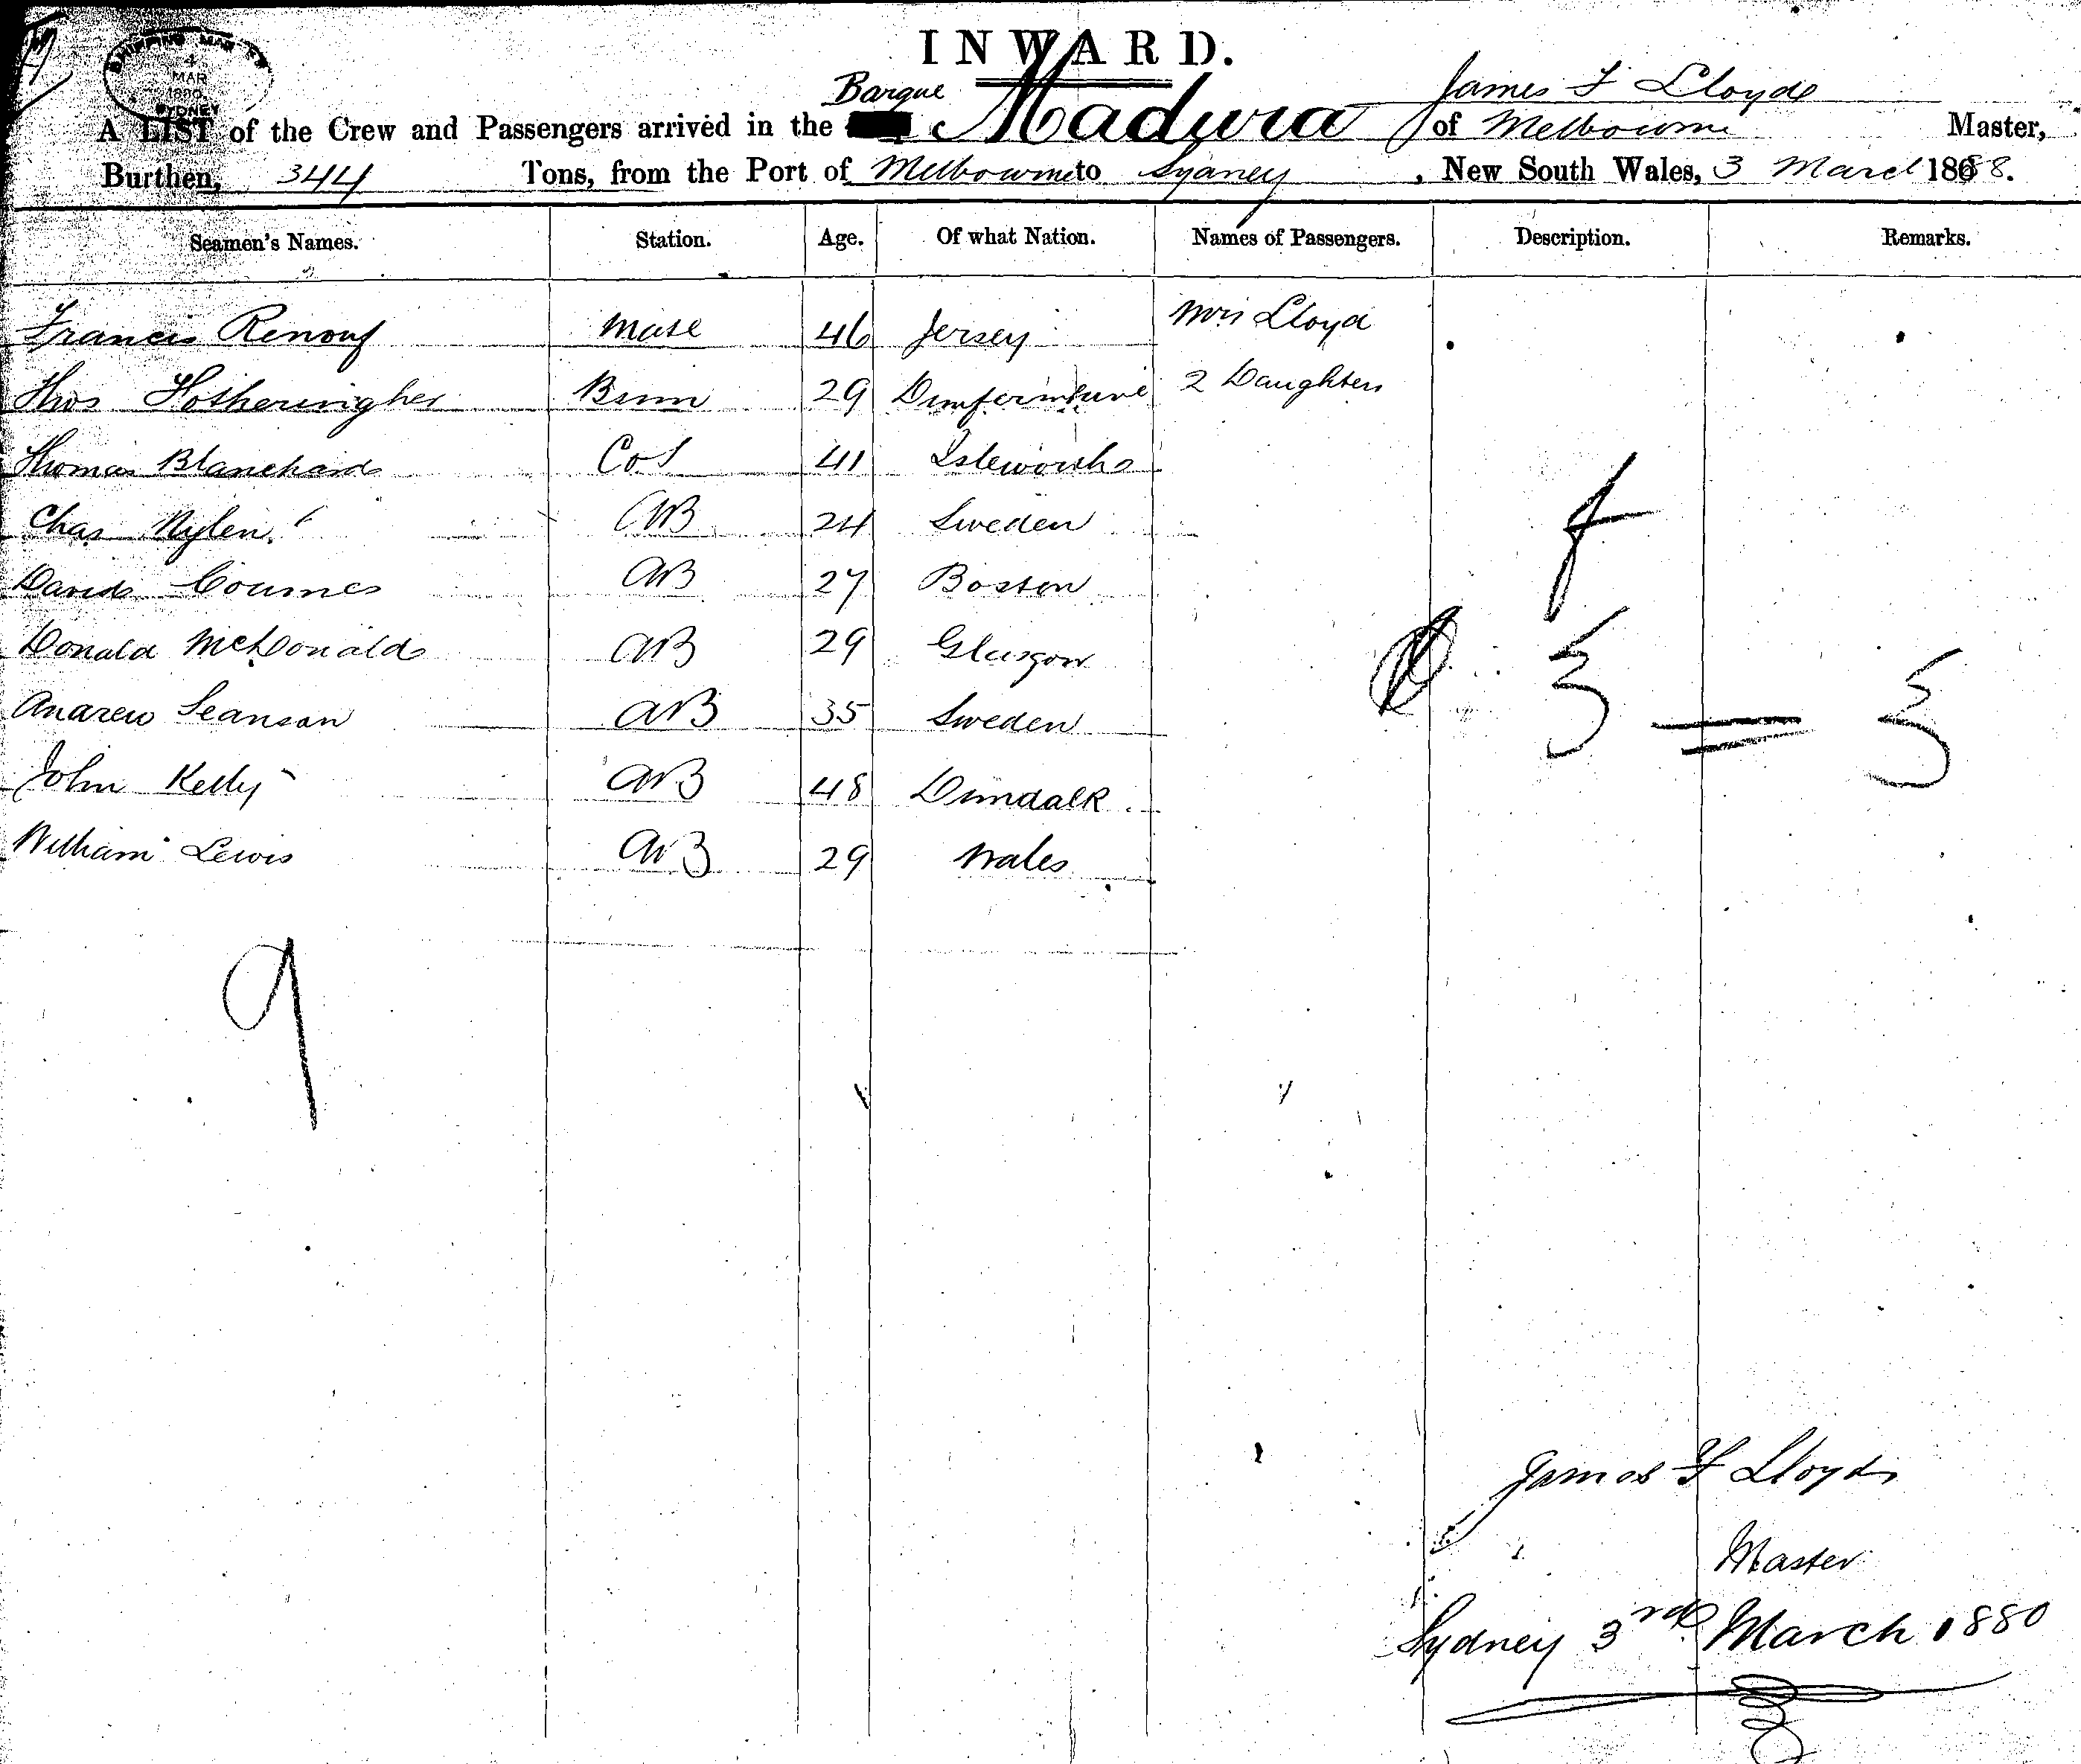 INWARD.
SHIPPING MASTER
4
MAR
1880
SYDNEY
Barque James F Lloyd
A LIST of the Crew and Passengers arrived in the Madura of Melbourne Master,
Burthen, 344 Tons, from the Port of Melbourne to Sydney, New South Wales, 3 March 188.
Seamen's Names. Station. Age. Of what Nation. Names of Passengers. Description. Remarks.
Francis Renouf Mate 46 Jersey Mrs Lloyd
Thos 29 2 Daughters
Thomas Blanchard 41 Isleworth
Chas Nylen AB 24 Sweden
David AB 27 Boston
Donald McDonald AB 29 Glasgow
Andrew AB 35 Sweden
John Kelly AB 48 Dundalk
William Lewis AB 29 Wales
f
3 = 3
9
James F Lloyd
Master
Sydney 3rd March 1880